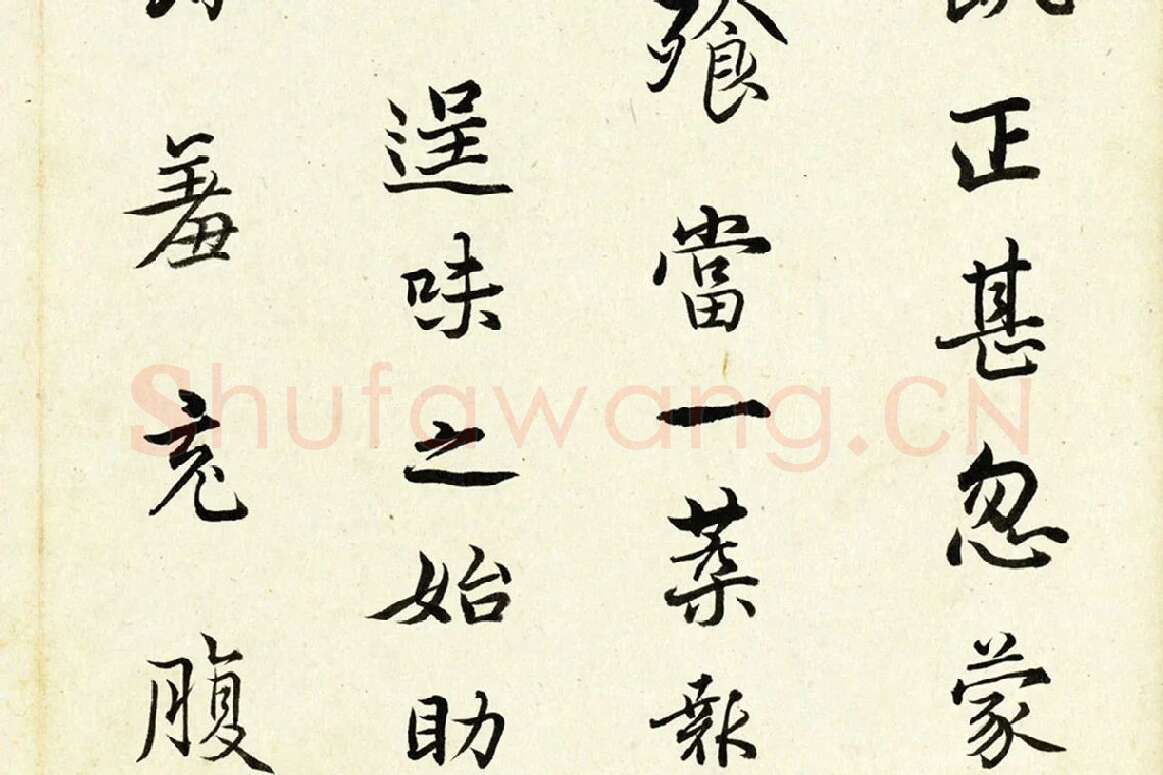 正甚忽蒙
飱當一葉報
逞味之始助
羞充腹
Shufawang.CN